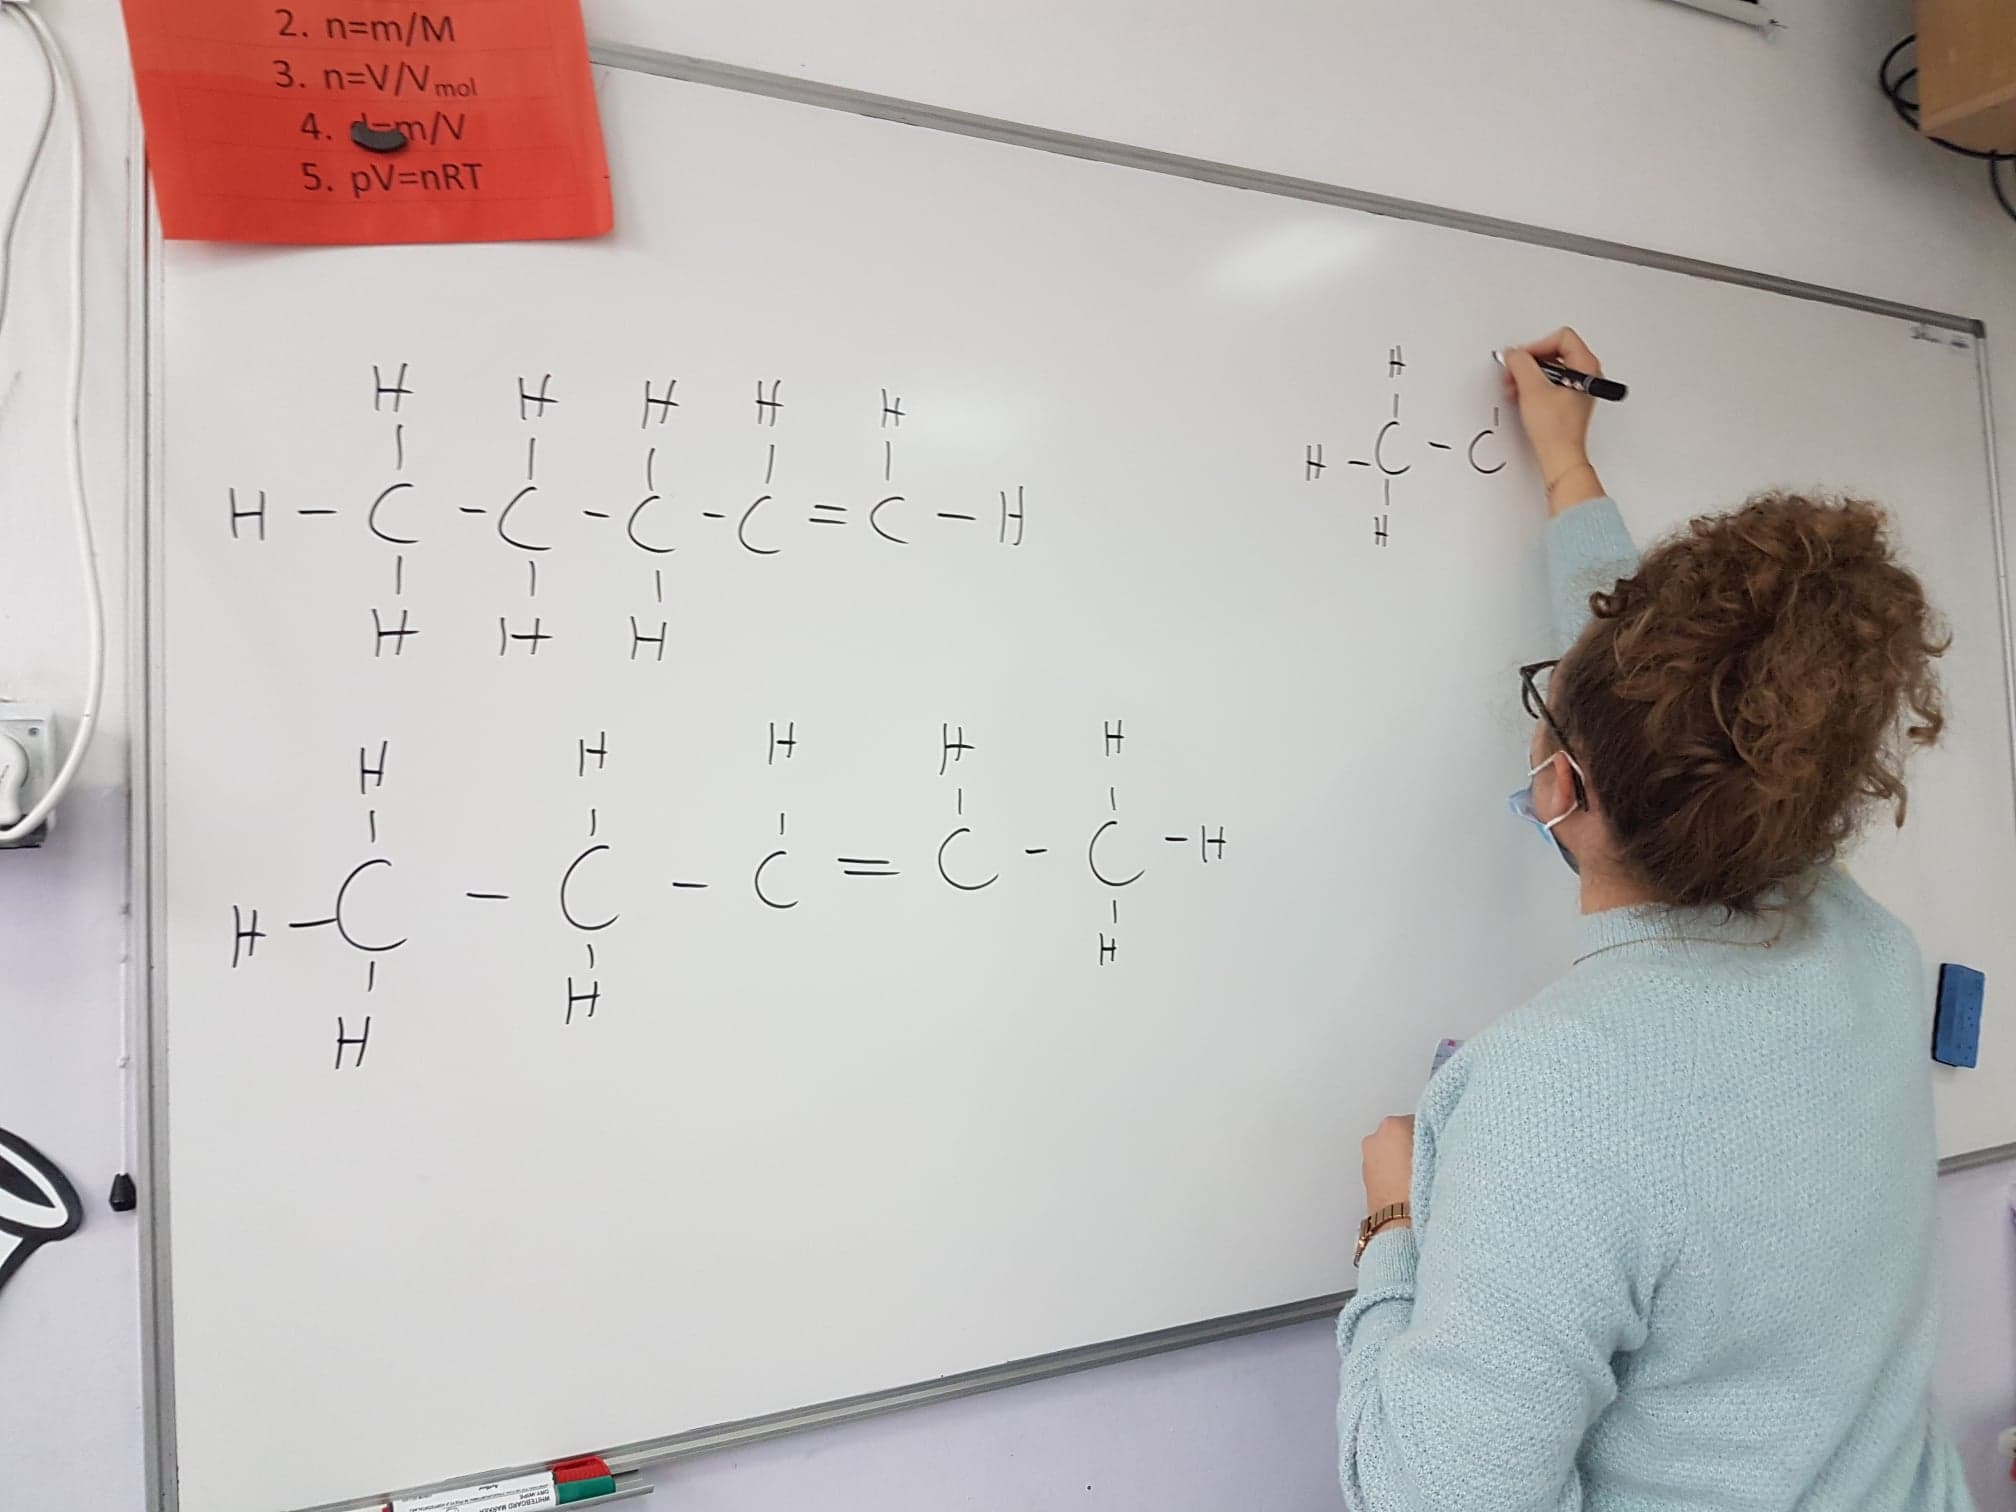 2. n=m/M
3. n=V/Vmol
4. d=m/V
5. pV=nRT
H H H H H
H - C - C - C - C = C - H
H H H
H H H H H
H - C - C - C = C - C - H
H H H
H
H - C - C
H
WHITEBOARD MARKER
DRY WIPE